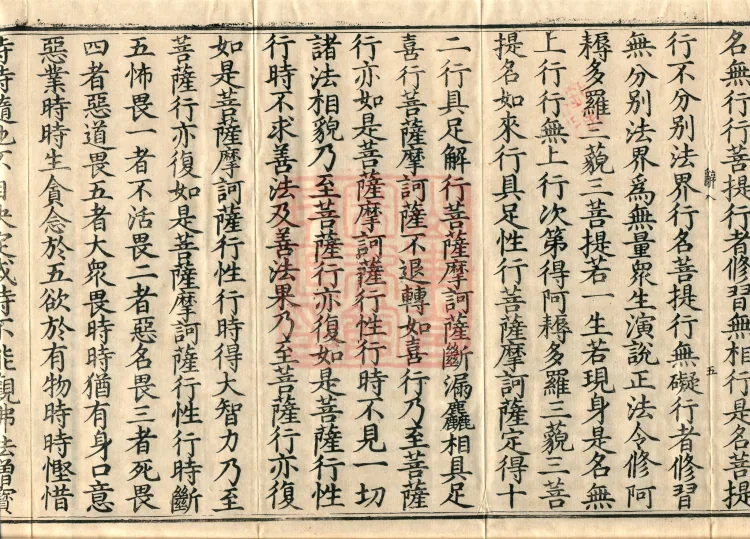 名無行行菩提行者修習無相行是名菩提
行不分別法界行名菩提行無礙行者修習
無分別法界爲無量衆生演說正法令修阿
耨多羅三藐三菩提若一生若現身是名無
上行行無上行次第得阿耨多羅三藐三菩
提名如來行具足性行菩薩摩訶薩定得十
二行具足解行菩薩摩訶薩斷漏麤相具足
喜行菩薩摩訶薩不退轉如喜行乃至菩薩
行亦如是菩薩摩訶薩行性行時不見一切
諸法相貌乃至菩薩行亦復如是菩薩行性
行時不求善法及善法果乃至菩薩行亦復
如是菩薩摩訶薩行性行時得大智力乃至
菩薩行亦復如是菩薩摩訶薩行性行時斷
五怖畏一者不活畏二者惡名畏三者死畏
四者惡道畏五者大衆畏時時猶有身口意
惡業時時生貪念於五欲於有物時時慳惜
能觀佛法僧寶
辭
五